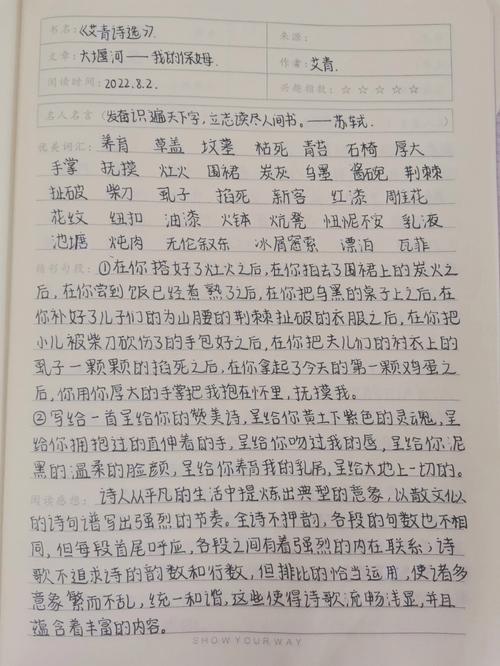 书名：《艾青诗选》 来源：
文章：大堰河——我的保姆． 作者：艾青．
阅读时间：2022.8.2． 兴趣指数：☆ ☆ ☆ ☆ ☆
名人名言（发奋识遍天下字，立志读尽人间书。——苏轼．）
优美词汇：养育 草盖 坟墓 枯死 青苔 石椅 厚大
手掌 抚摸 灶火 围裙 炭灰 乌黑 酱碗 荆棘
扯破 柴刀 虱子 掐死 新客 红漆 雕花
花纹 纽扣 油漆 火钵 炕凳 忸怩不安 乳液
池塘 炖肉 无伦叙东 冰屑窸索 漂泊 瓦菲
精彩句段：①在你搭好了灶火之后，在你拍去了围裙上的炭火之
后，在你尝到饭已经煮熟了之后，在你把乌黑的桌子上之后，在
你补好了儿子们的为山腰的荆棘扯破的衣服之后，在你把
小儿被柴刀砍伤了的手包好之后，在你把夫儿们的衬衣上的
虱子一颗颗的掐死之后，在你拿起了今天的第一颗鸡蛋之
后，你用你厚大的手掌把我抱在怀里，抚摸我。
②写给一首呈给你的赞美诗，呈给你黄土下紫色的灵魂，呈
给你拥抱过的直伸着的手，呈给你吻过我的唇，呈给你泥
黑的温柔的脸颜，呈给你养育我的乳房，呈给大地上一切的。
阅读感想：诗人从平凡的生活中提炼出典型的意象，以散文似
的诗句谱写出强烈的节奏。全诗不押韵，各段的句数也不相
同，但每段首尾呼应，各段之间有着强烈的内在联系；诗
歌不追求诗的韵数和行数，但排比的恰当运用，使诸多
意象繁而不乱，统一和谐，这些使得诗歌流畅浅显，并且
蕴含着丰富的内容。
SHOW YOUR WAY